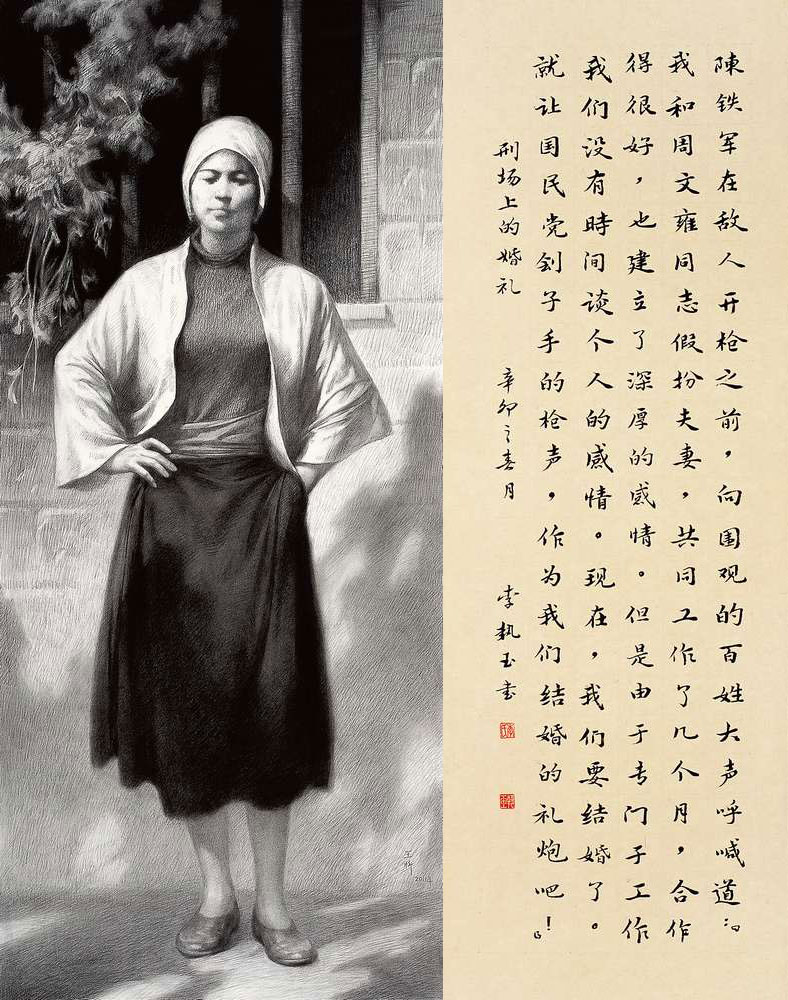 陳铁军在敌人开枪之前，向围观的百姓大声呼喊道：『
我和周文雍同志假扮夫妻，共同工作了几个月，合作
得很好，也建立了深厚的感情。但是由于专门于工作
我们没有時间谈个人的感情。现在，我们要结婚了。
就让国民党刽子手的枪声，作为我们结婚的礼炮吧！』
刑场上的婚礼 辛卯之春月 李執玉书